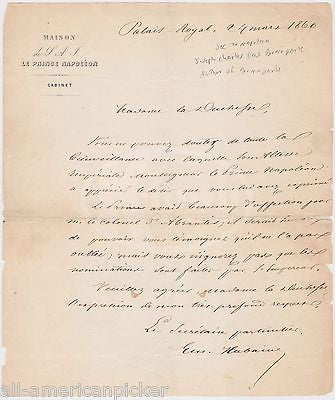 MAISON
de S. A. I.
LE PRINCE NAPOLÉON
CABINET
Palais Royal, 24 mars 1860
Sec to Napoleon
Joseph Charles Paul Bonaparte
Madame la Duchesse,
Vous ne pouvez douter de toute la
bienveillance avec laquelle Son Altesse
Impériale Monseigneur le Prince Napoléon
a apprécié le désir que vous lui avez exprimé.
Le Prince avait beaucoup d'affection pour
le colonel d'Abrantès, il serait
de pouvoir vous témoigner qu'il ne l'a pas
oublié; mais vous n'ignorez pas que les
nominations sont faites par l'Empereur.
Veuillez agréer Madame la Duchesse
l'expression de mon très profond respect.
Le Secrétaire particulier
Em. Hubaine
all-americanpicker